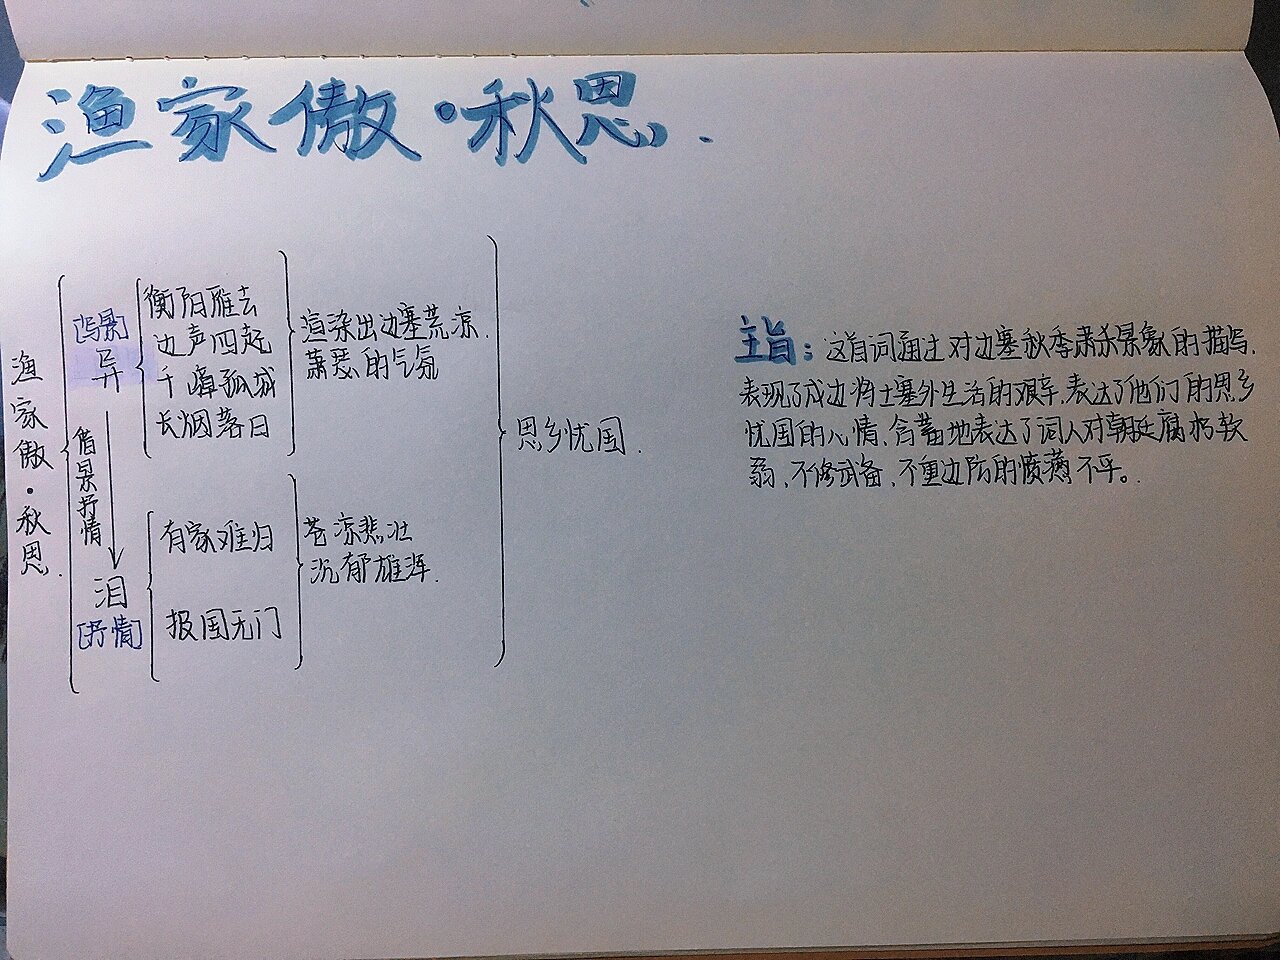 渔家傲·秋思.
渔家傲·秋思.
[写景]
异
借景抒情
泪
[抒情]
衡阳雁去
边声四起
千嶂孤城
长烟落日
渲染出边塞荒凉.
萧瑟的气氛
有家难归
报国无门
苍凉悲壮
沉郁雄浑.
思乡忧国.
主旨:这首词通过对边塞秋季肃杀景象的描写,
表现了戍边将士塞外生活的艰辛,表达了他们的思乡
忧国的心情,含蓄地表达了词人对朝廷腐朽软
弱,不修武备,不重边防的愤懑不平。